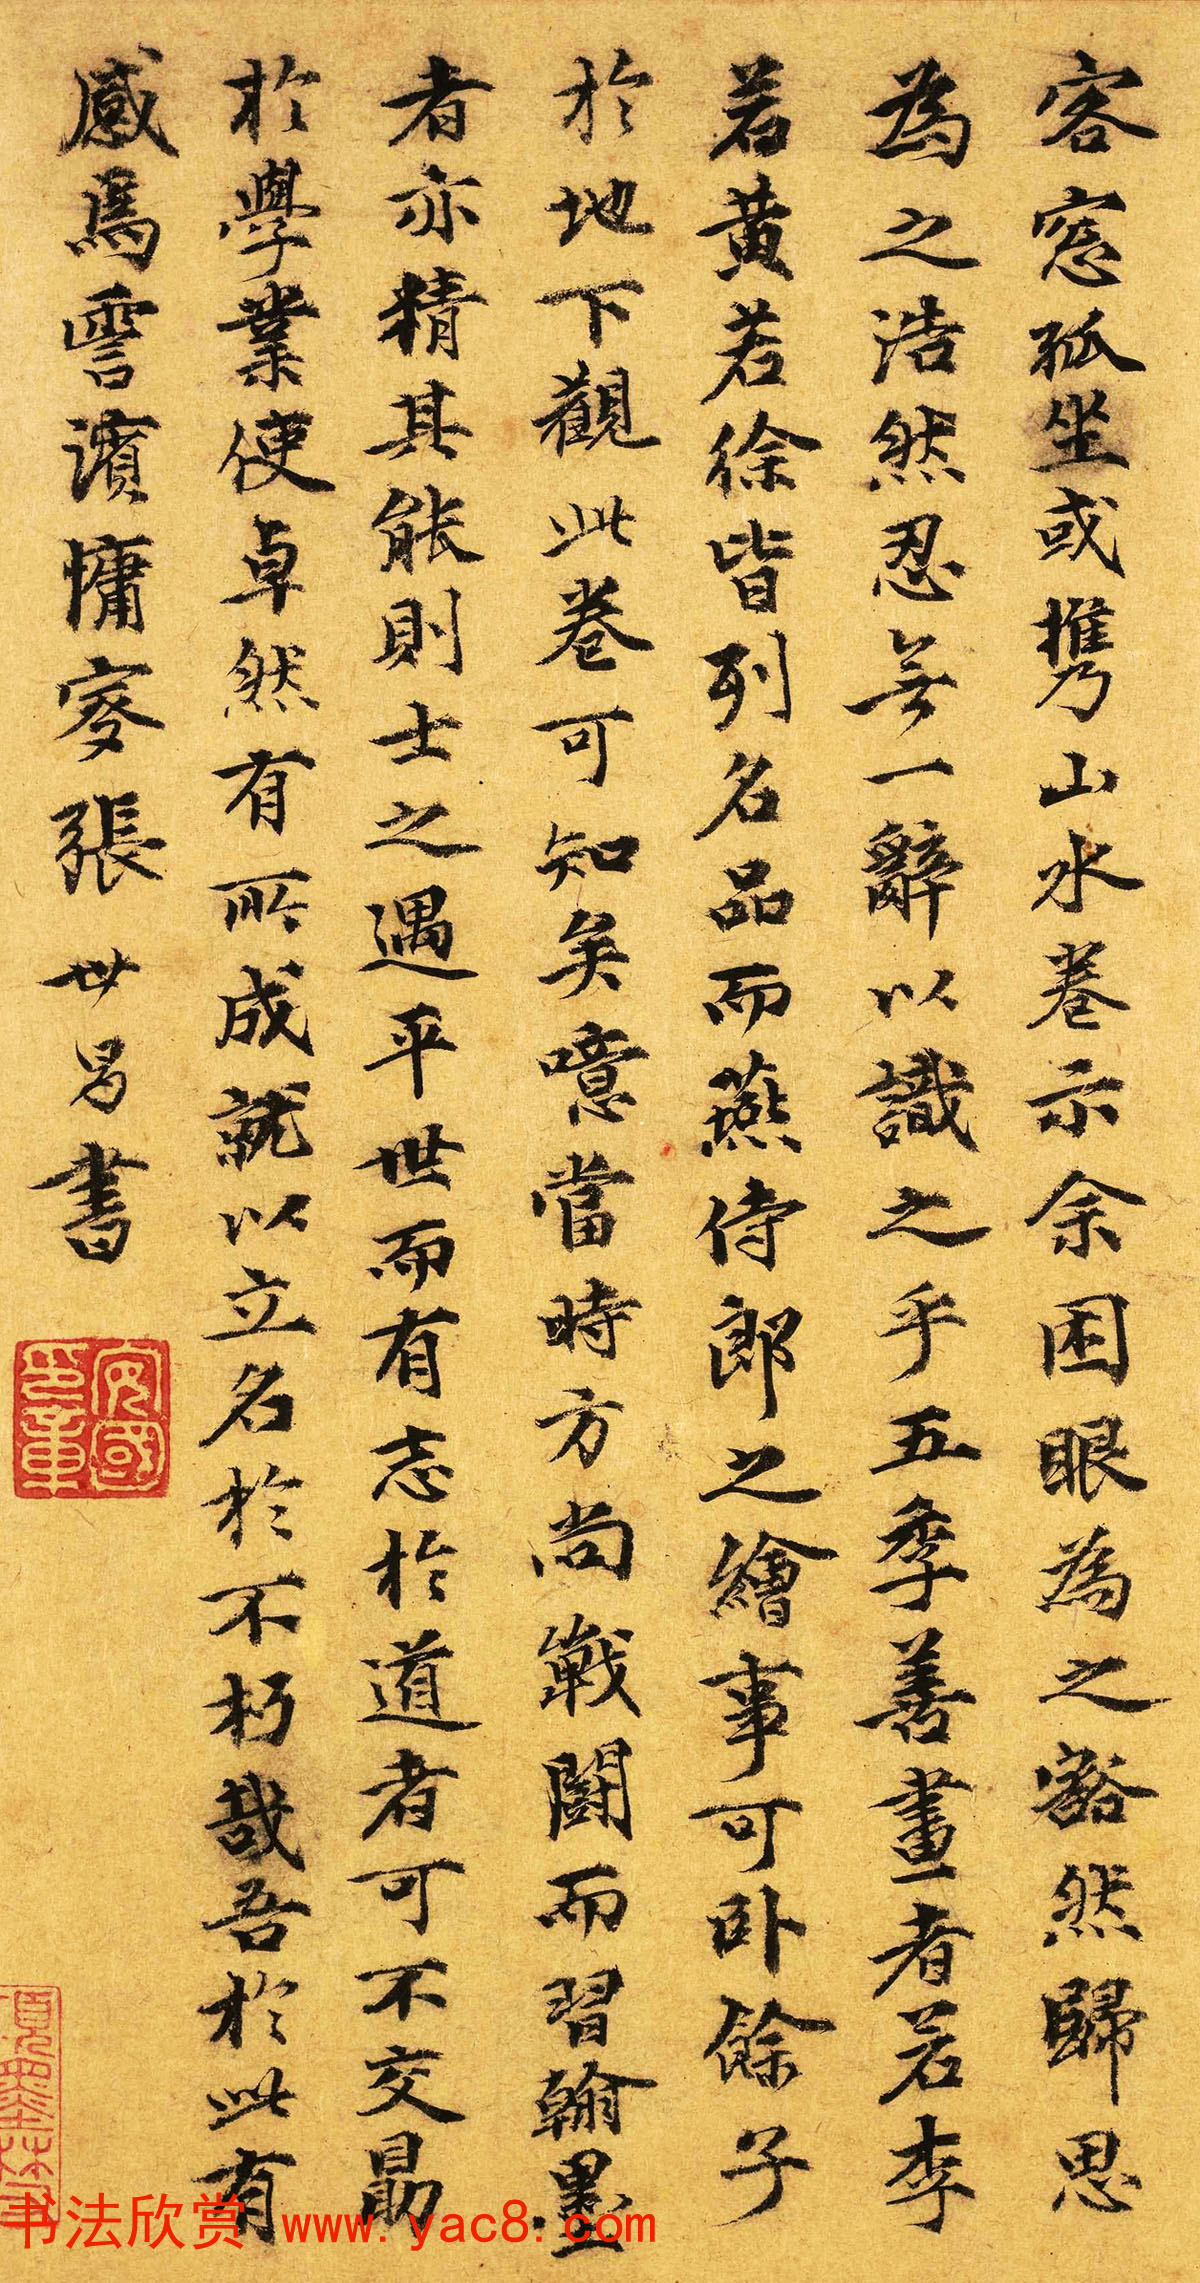 客窓孤坐或携山水卷示余困眼為之豁然歸思
為之浩然忍無一辭以識之乎五季善畫者若李
若黃若徐皆列名品而燕侍郎之繪事可卧餘子
於地下觀此卷可知矣噫當時方尚戰鬪而習翰墨
者亦精其能則士之遇平世而有志於道者可不交勗
於學業使卓然有所成就以立名於不朽哉吾於此有
感焉雪濱慵叟張世昌書
安國印章
書法欣赏 www.yac8.com